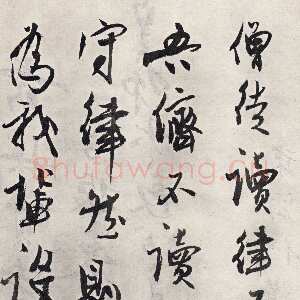 僧徒讀律
吾儕不讀
守律然則
為我輩設
Shufawang.cn